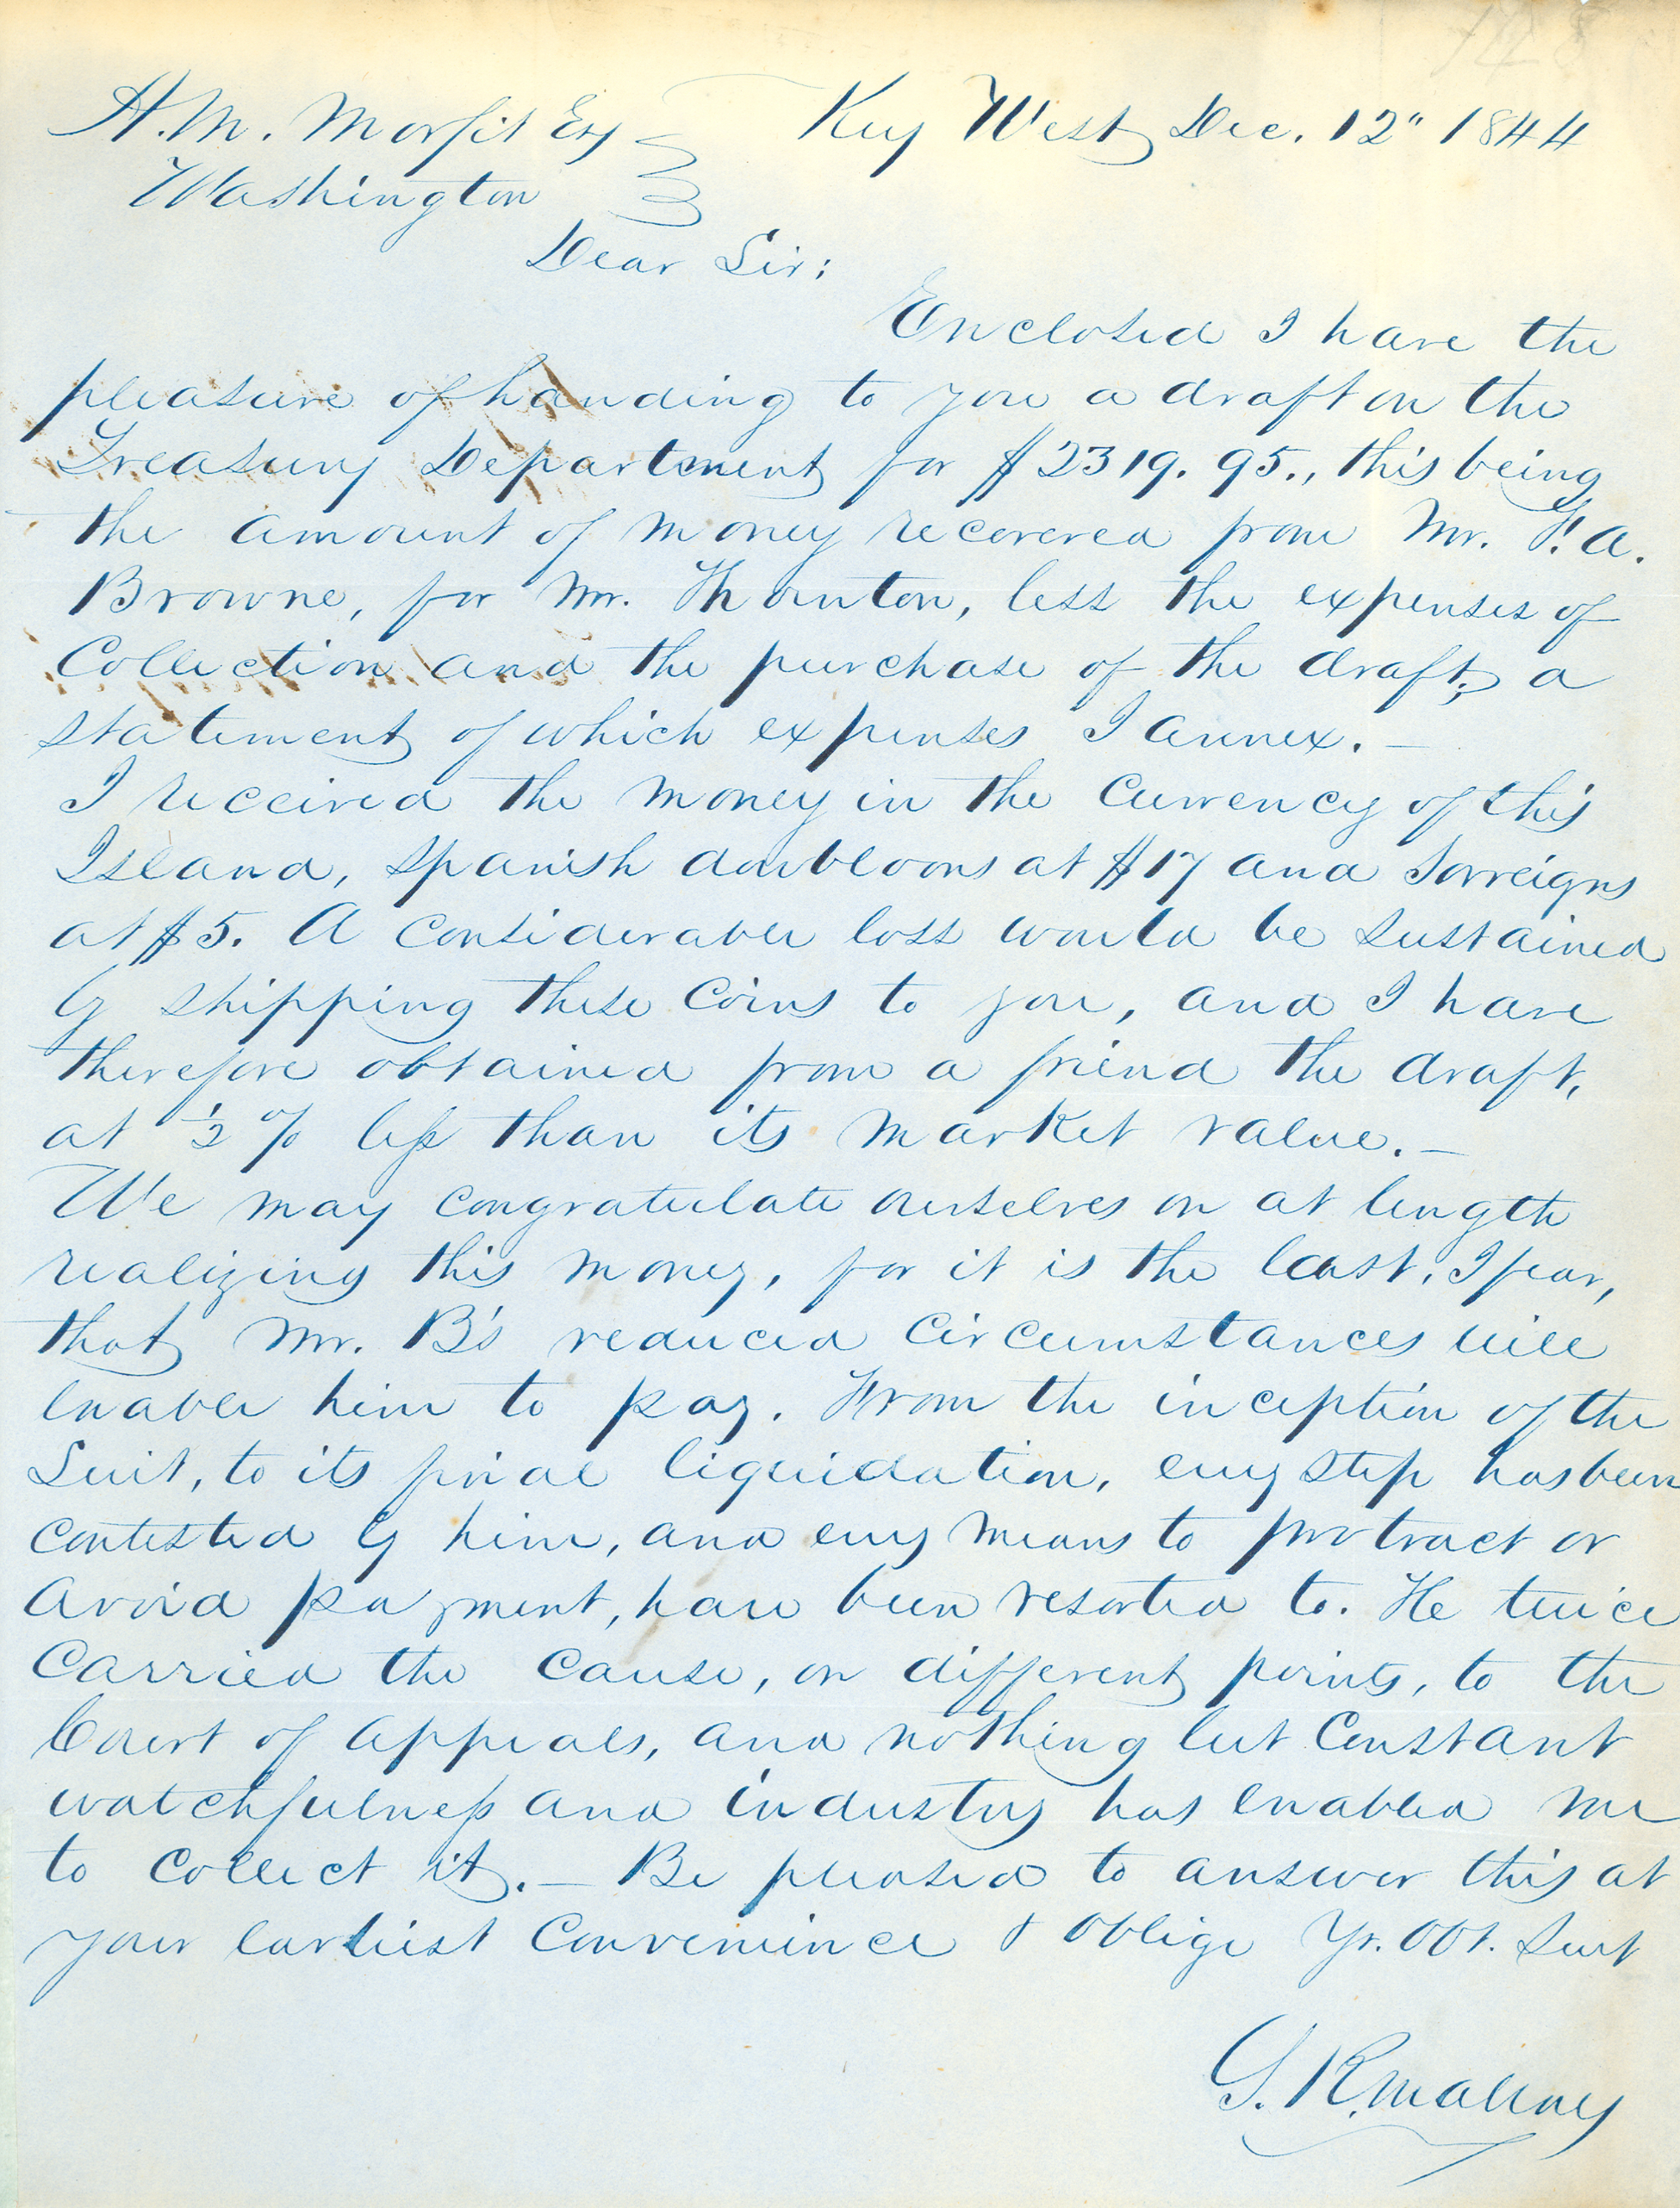 H. M. Morfit Esq Key West Dec. 12" 1844
Washington
Dear Sir:
Enclosed I have the
pleasure of handing to you a draft on the
Treasury Department for $2319.95., this being
the amount of money recovered from Mr. F. A.
Browne, for Mr. Thornton, less the expenses of
Collection and the purchase of the draft; a
statement of which expenses I annex. —
I received the money in the Currency of this
Island, Spanish doubloons at $17 and Sovreigns
at $5. A considerable loss would be sustained
by shipping these Coins to you, and I have
therefore obtained from a friend the draft,
at ½ % less than its market value. —
We may congratulate ourselves on at length
realizing this money, for it is the last, I fear,
that Mr. B's reduced Circumstances will
enable him to pay. From the inception of the
Suit, to its final liquidation, evy step has been
Contested by him, and evy means to protract or
avoid payment, have been resorted to. He twice
Carried the Cause, on different points, to the
Court of appeals, and nothing but Constant
watchfulness and industry has enabled me
to Collect it. — Be pleased to answer this at
your earliest Convenience & oblige Yr. Obt. Servt